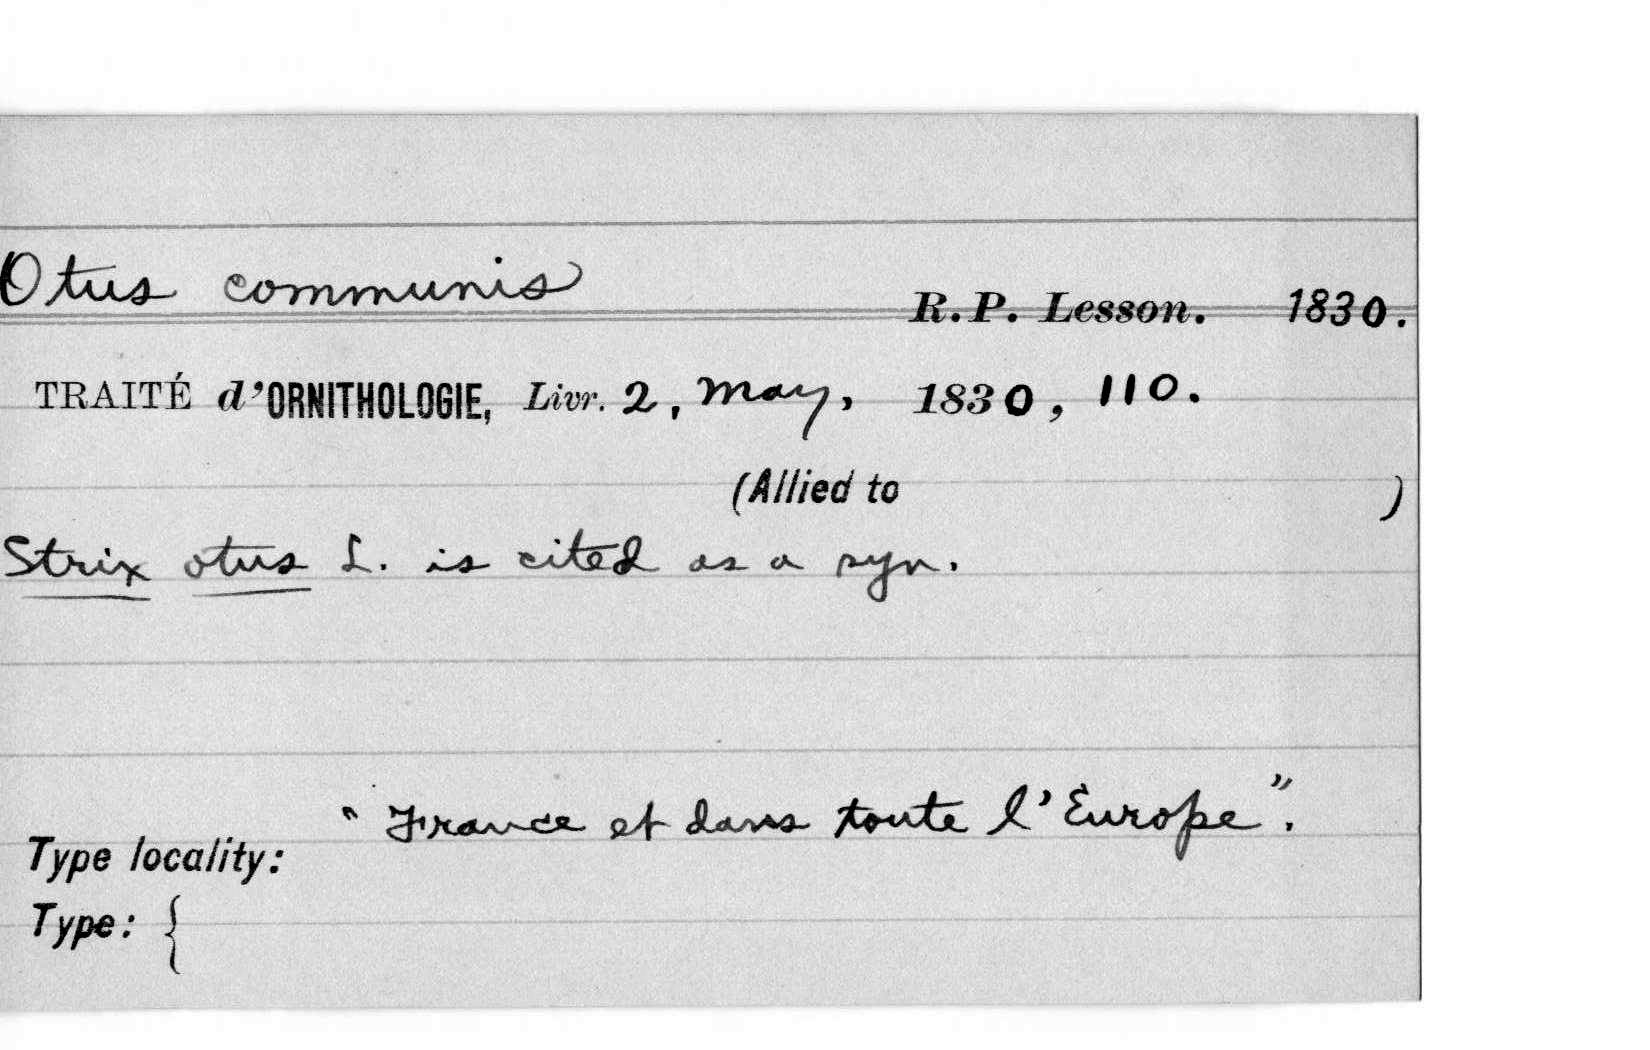 Otus communis R. P. Lesson. 1830.
TRAITÉ d'ORNITHOLOGIE, Livr. 2, May, 1830, 110.
(Allied to )
Strix otus L. is cited as a syn.
"France et dans toute l'Europe".
Type locality:
Type: {